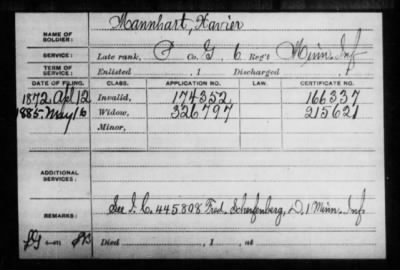 NAME OF SOLDIER: Mannhart, Xavier
SERVICE: Late rank, P Co. G, 6 Reg't Minn. Inf
TERM OF SERVICE: Enlisted , 1 Discharged , 1
DATE OF FILING. CLASS. APPLICATION NO. LAW. CERTIFICATE NO.
1872 Apl 12 Invalid, 174352 166337
1885 May 16 Widow, 326797 215621
Minor,
ADDITIONAL SERVICES:
REMARKS: See I. C. 445808 Fred. Scherfenberg, D, 1 Minn. Inf.
Died , 1 , at